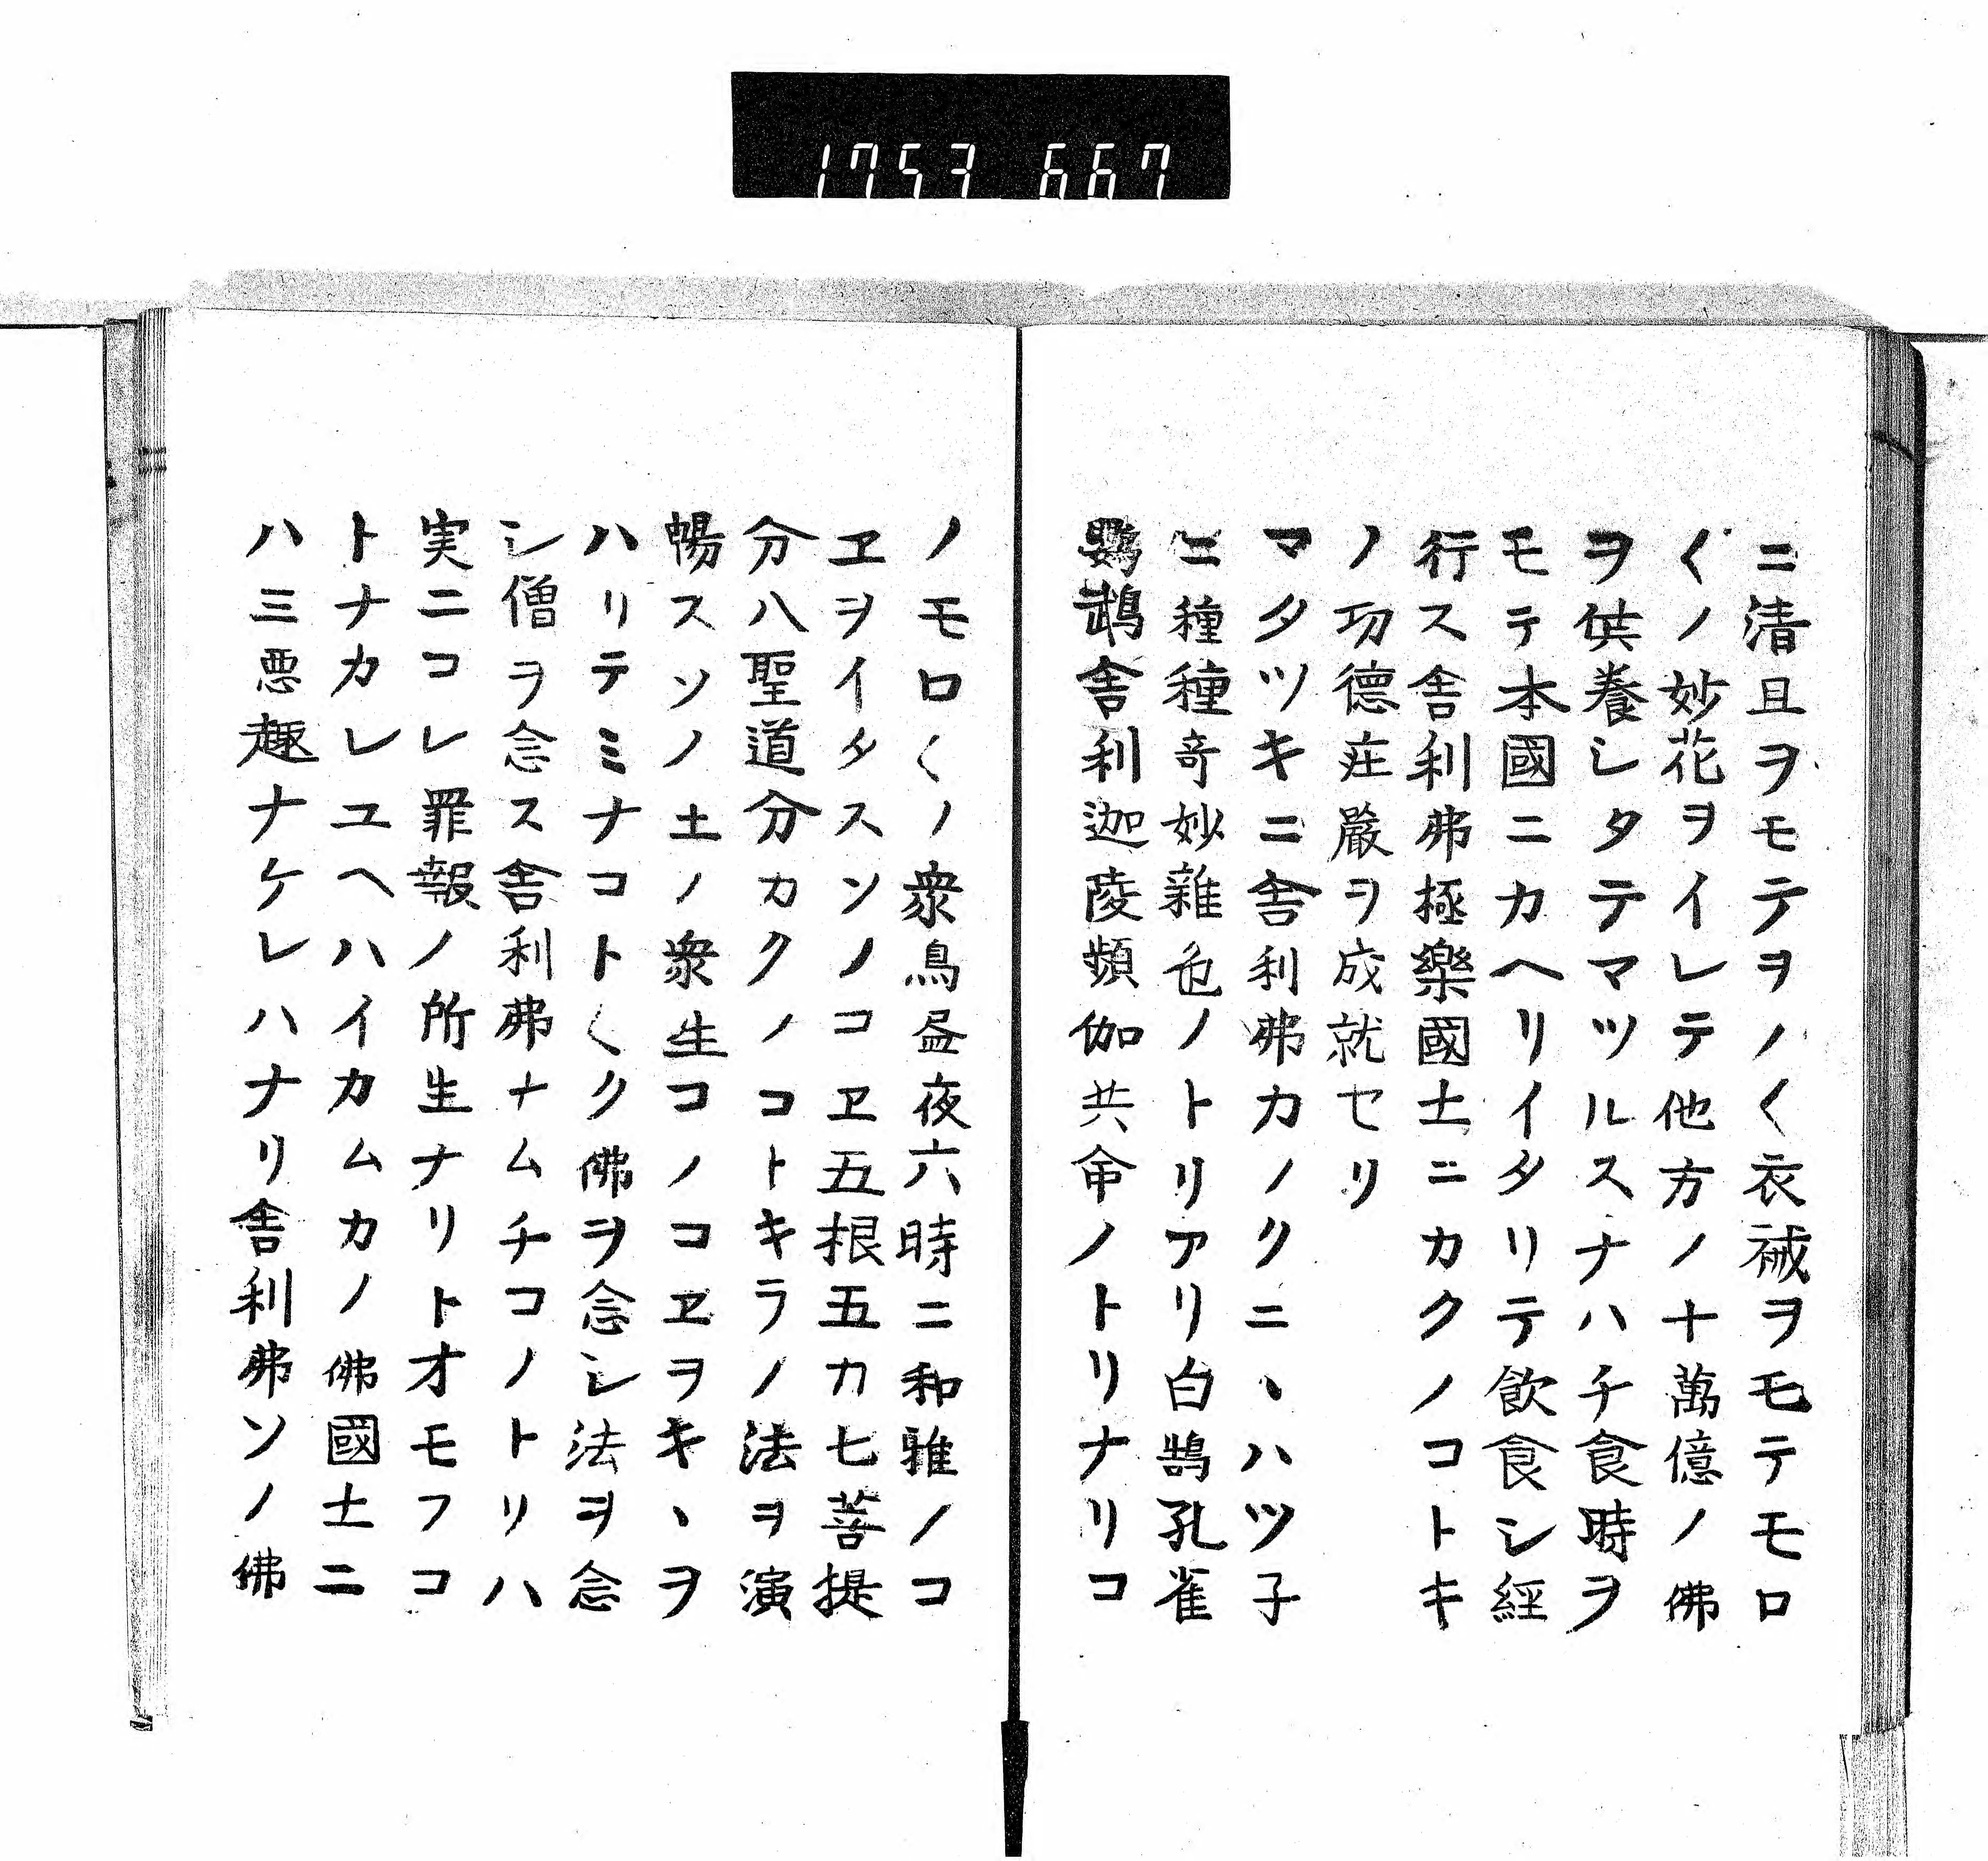 1753 667
ニ清旦ヲモテヲノ〱衣裓ヲモテモロ
〱ノ妙花ヲイレテ他方ノ十萬億ノ佛
ヲ供養シタテマツルスナハチ食時ヲ
モテ本國ニカヘリイタリテ飲食シ經
行ス舎利弗極樂國土ニカクノコトキ
ノ功德庄嚴ヲ成就セリ
マタツキニ舎利弗カノクニヽハツ子
ニ種種奇妙雜色ノトリアリ白鵠孔雀
鸚鵡舎利迦陵頻伽共命ノトリナリコ
ノモロ〱ノ衆鳥昼夜六時ニ和雅ノコ
ヱヲイタスソノコヱ五根五力七菩提
分八聖道分カクノコトキラノ法ヲ演
暢スソノ土ノ衆生コノコヱヲキヽヲ
ハリテミナコト〱ク佛ヲ念シ法ヲ念
シ僧ヲ念ス舎利弗ナムチコノトリハ
実ニコレ罪報ノ所生ナリトオモフコ
トナカレユヘハイカムカノ佛國土ニ
ハ三悪趣ナケレハナリ舎利弗ソノ佛